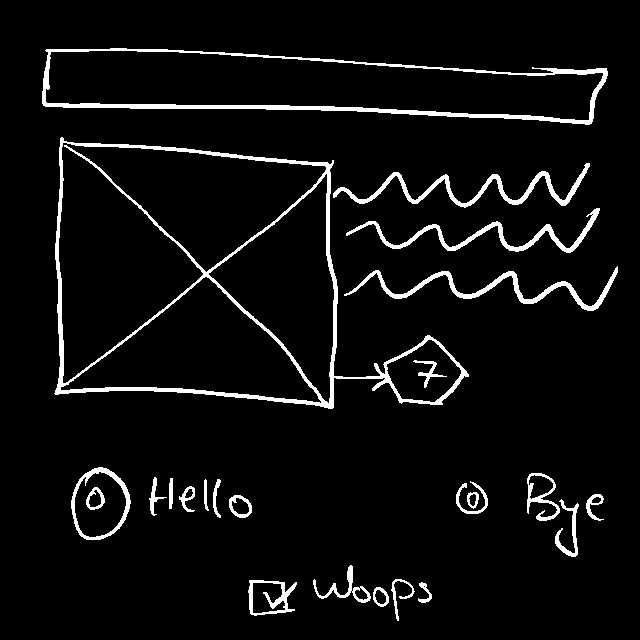 7
Hello
Bye
Woops